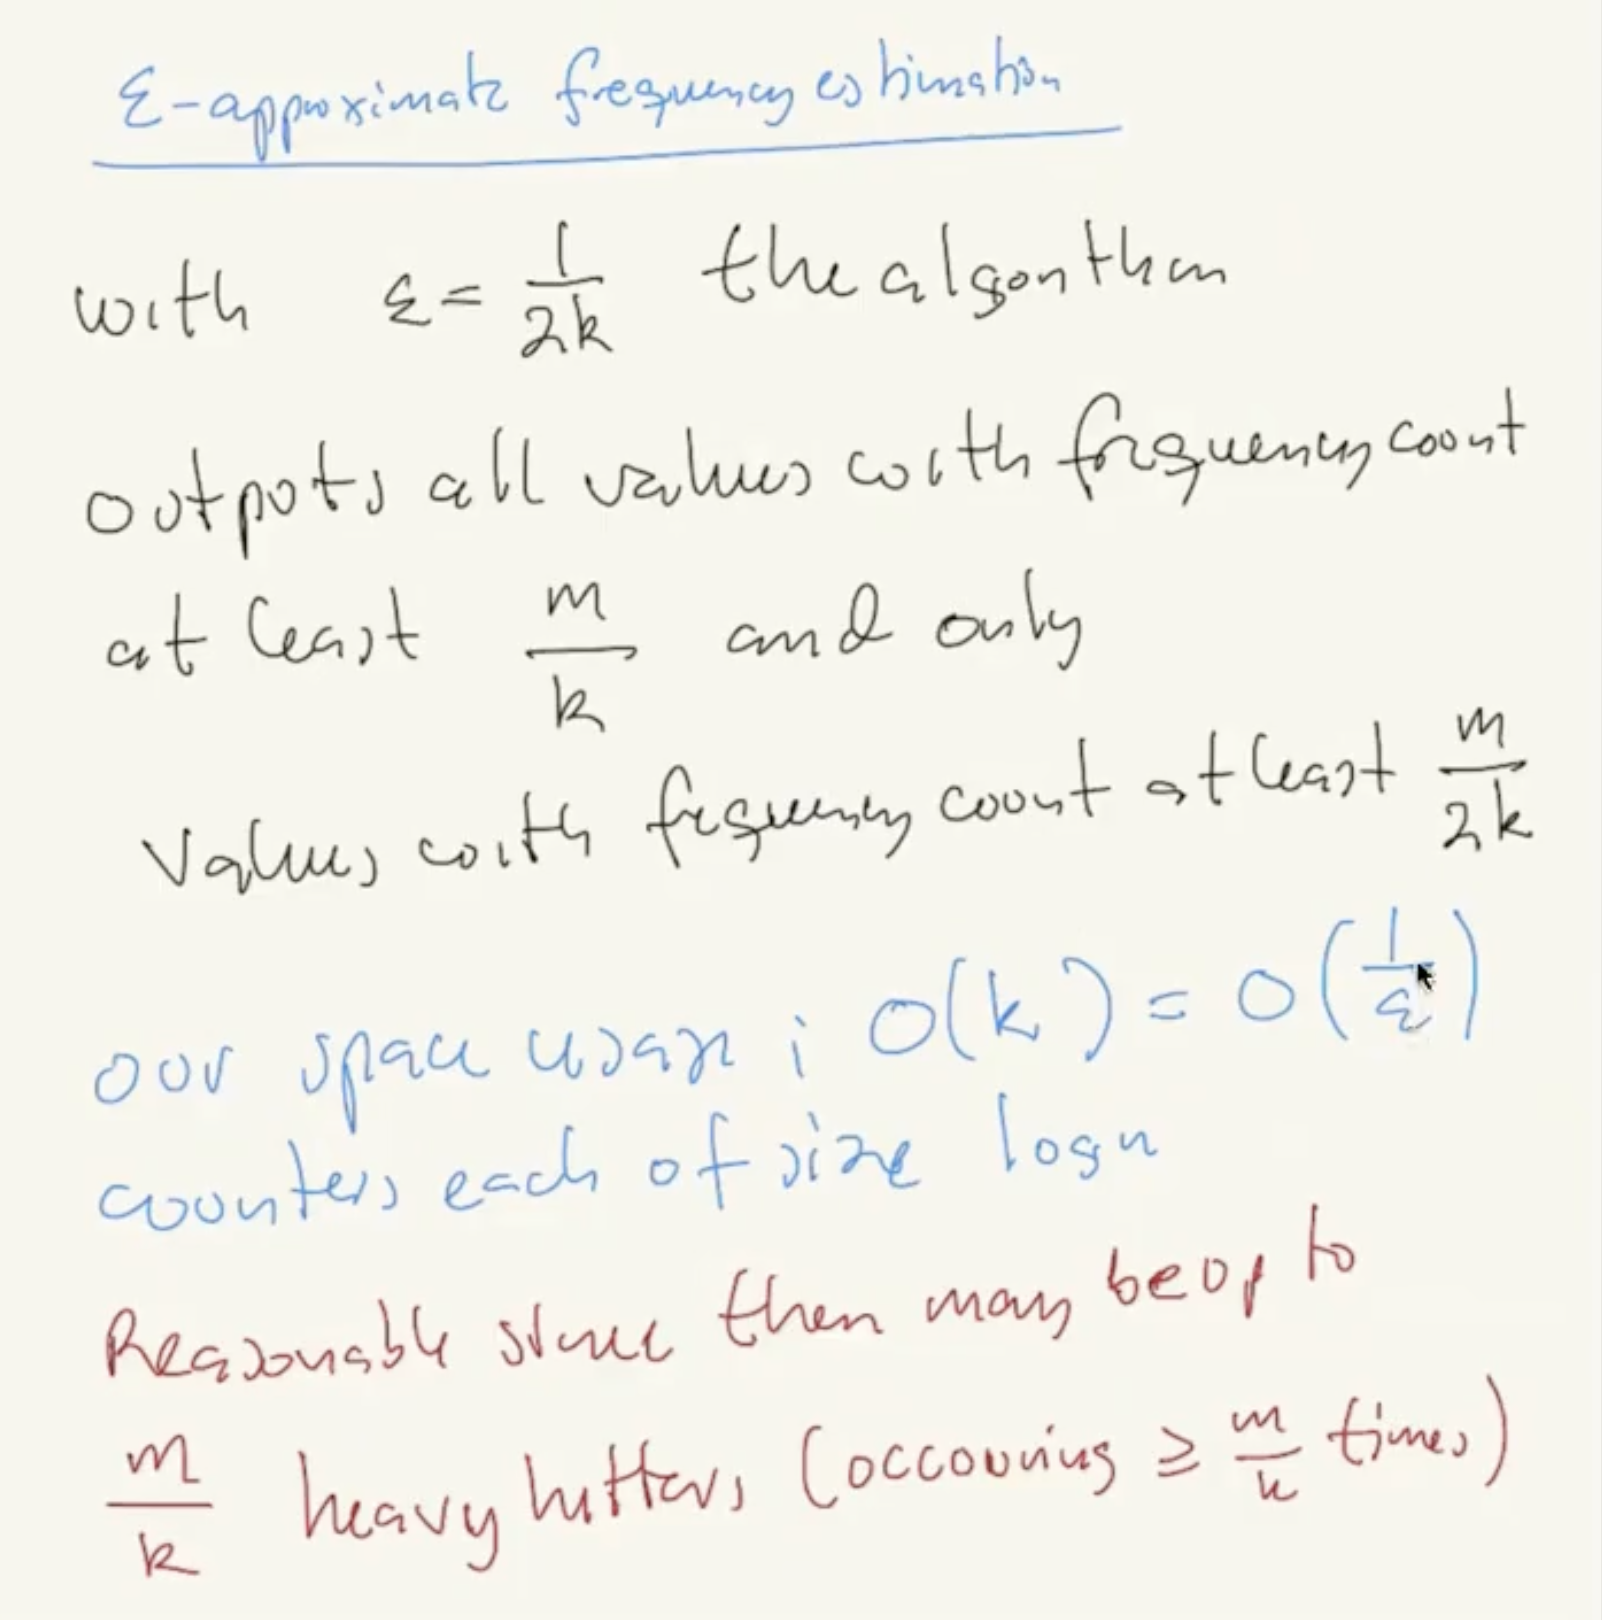 ε-approximate frequency estimation
with ε = 1/2k the algorithm
outputs all values with frequency count
at least m/k and only
values with frequency count at least m/2k
our space usage : O(k) = O(1/ε)
counters each of size log n
Reasonable since there may be up to
m/k heavy hitters (occouring ≥ m/k times)